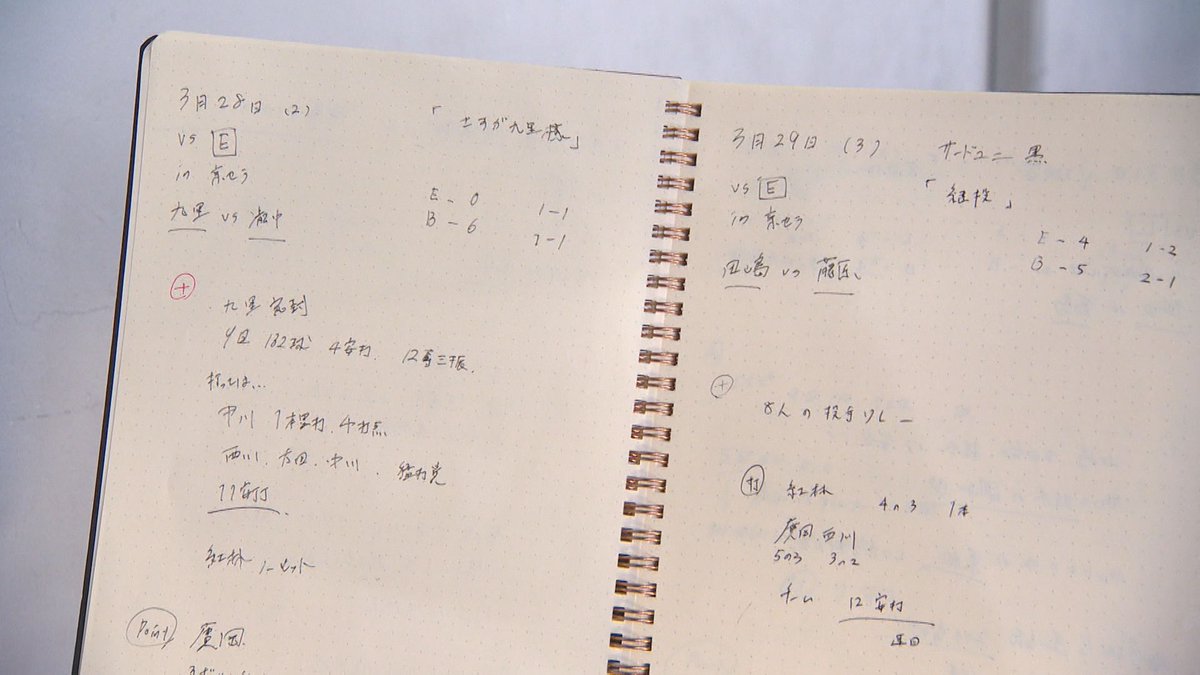 3月28日 (2)
「さすが九里様」
vs E
in 京セラ
九里 vs 滝中
E - 0 1-1
B - 6 1-1
+
九里 完封
9回 132球 4安打 12奪三振
打っては…
中川 1本塁打、4打点
西川、太田、中川、猛打賞
11安打
紅林 ノーヒット
Point 廣岡
3月29日 (3)
サードユニ 黒
「継投」
vs E
in 京セラ
田嶋 vs 藤原
E - 4 1-2
B - 5 2-1
+
8人の投手リレー
打 紅林 4の3 1本
廣岡 西川
5の3 3の2
チーム 12安打